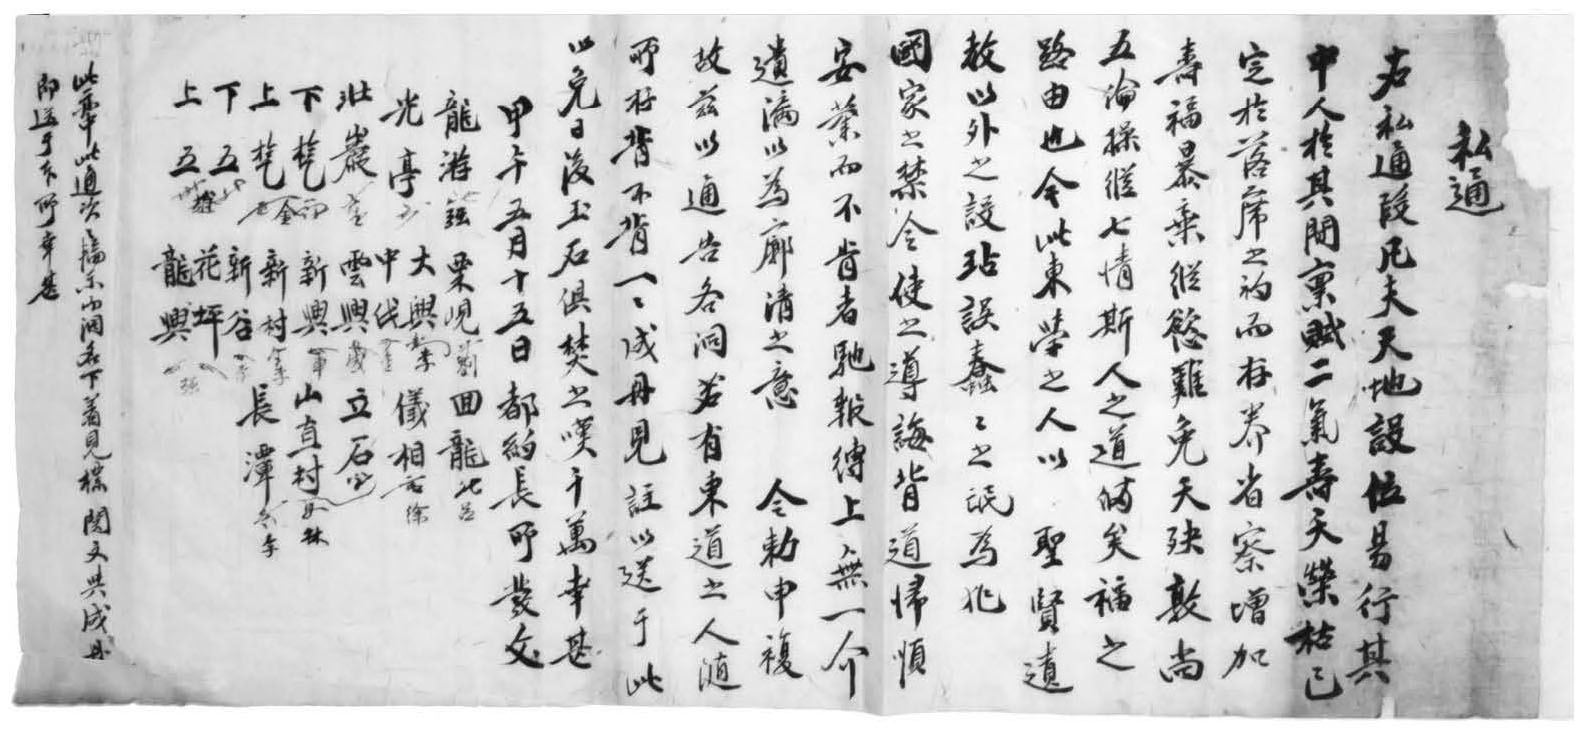 私通
右私通段凡夫天地設位易行其
中人於其間稟賦二氣壽夭榮枯已
定於落席之初而存養省察增加
壽福暴棄縱慾難免夭殃敦尚
五倫操縱七情斯人之道備矣福之
路由也今此東學之人以 聖賢遺
教以外之設玷誤蠢〻之氓爲非
國家之禁令使之導誨背道歸順
安業而不肯者馳報縛上無一介
遺漏以爲廓清之意 令勅申複
故玆以通告各洞若有東道之人隨
所存背不背一〻成冊見註以送于此
以免日後玉石俱焚之嘆千萬幸甚
甲午五月十五日都約長所發文
龍游 栗峴 回龍
光亭 大興 儀相
中伐
壯巖 雲興 立石
下 新興 山直村
上 新村 長潭
下五 新谷
上五 花坪
龍興
此電此通次〻輪示而洞名下着見樣 関文與成冊
即送于本所幸甚